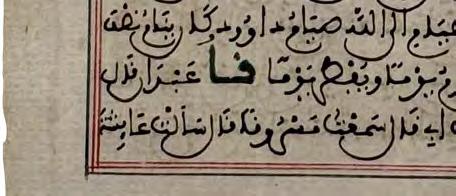 الصيام الى الله صيام داوُد وكان ينام نصف
يوما ويفطر يوما نا عبدان قال
ابي قال سمعت مسروقا قال سألت عايشة